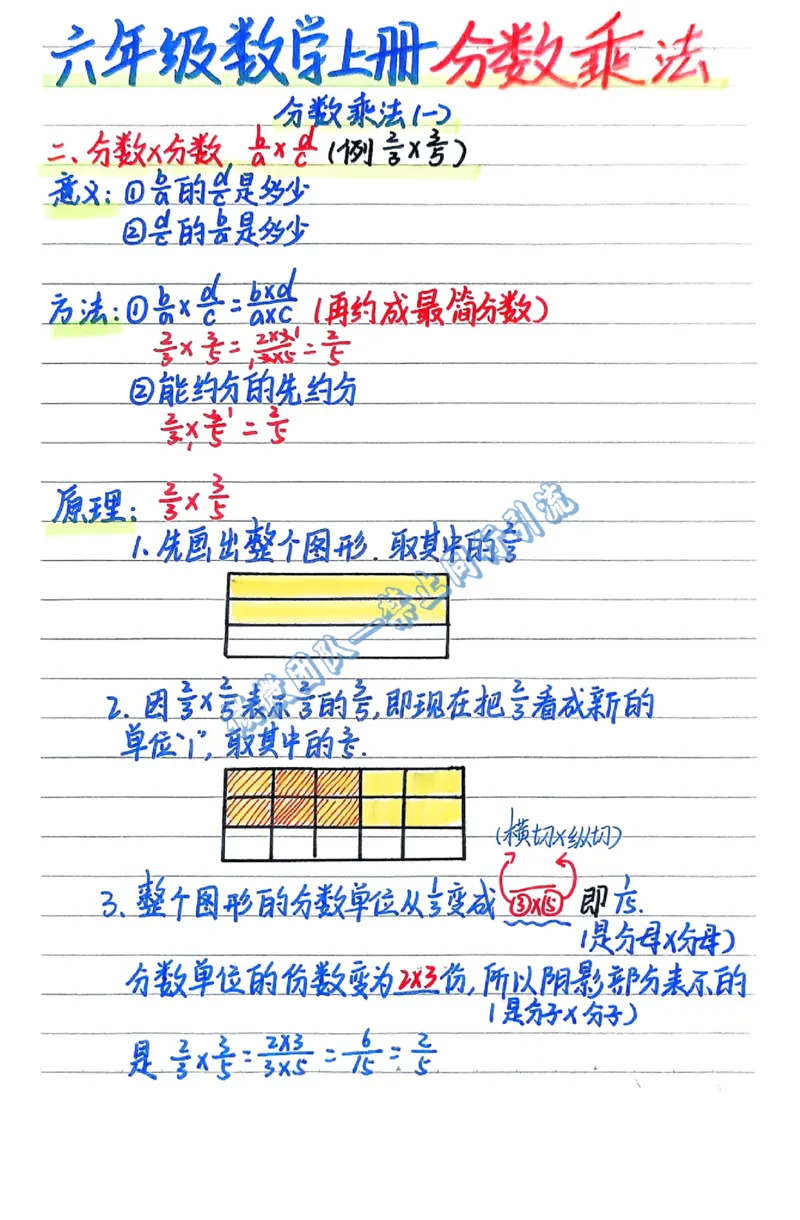 六年级数学上册分数乘法
分数乘法(一)
二、分数×分数 b/a × d/c (例 2/3 × 3/5)
意义: ① b/a 的 d/c 是多少
② d/c 的 b/a 是多少
方法: ① b/a × d/c = b×d/a×c (再约成最简分数)
2/3 × 3/5 = 2×3/3×5 = 2/5
②能约分的先约分
2/3 × 3/5 = 2/5
原理: 2/3 × 3/5
1、先画出整个图形.取其中的 2/3
2、因 2/3 × 3/5 表示 2/3 的 3/5,即现在把 2/3 看成新的
单位"1",取其中的 3/5.
(横切×纵切)
3、整个图形的分数单位从 1/3 变成 1/③×⑤ 即 1/15.
(是分母×分母)
分数单位的份数变为2×3份,所以阴影部分表示的
(是分子×分子)
是 2/3 × 3/5 = 2×3/3×5 = 6/15 = 2/5
团队—禁止同行引流